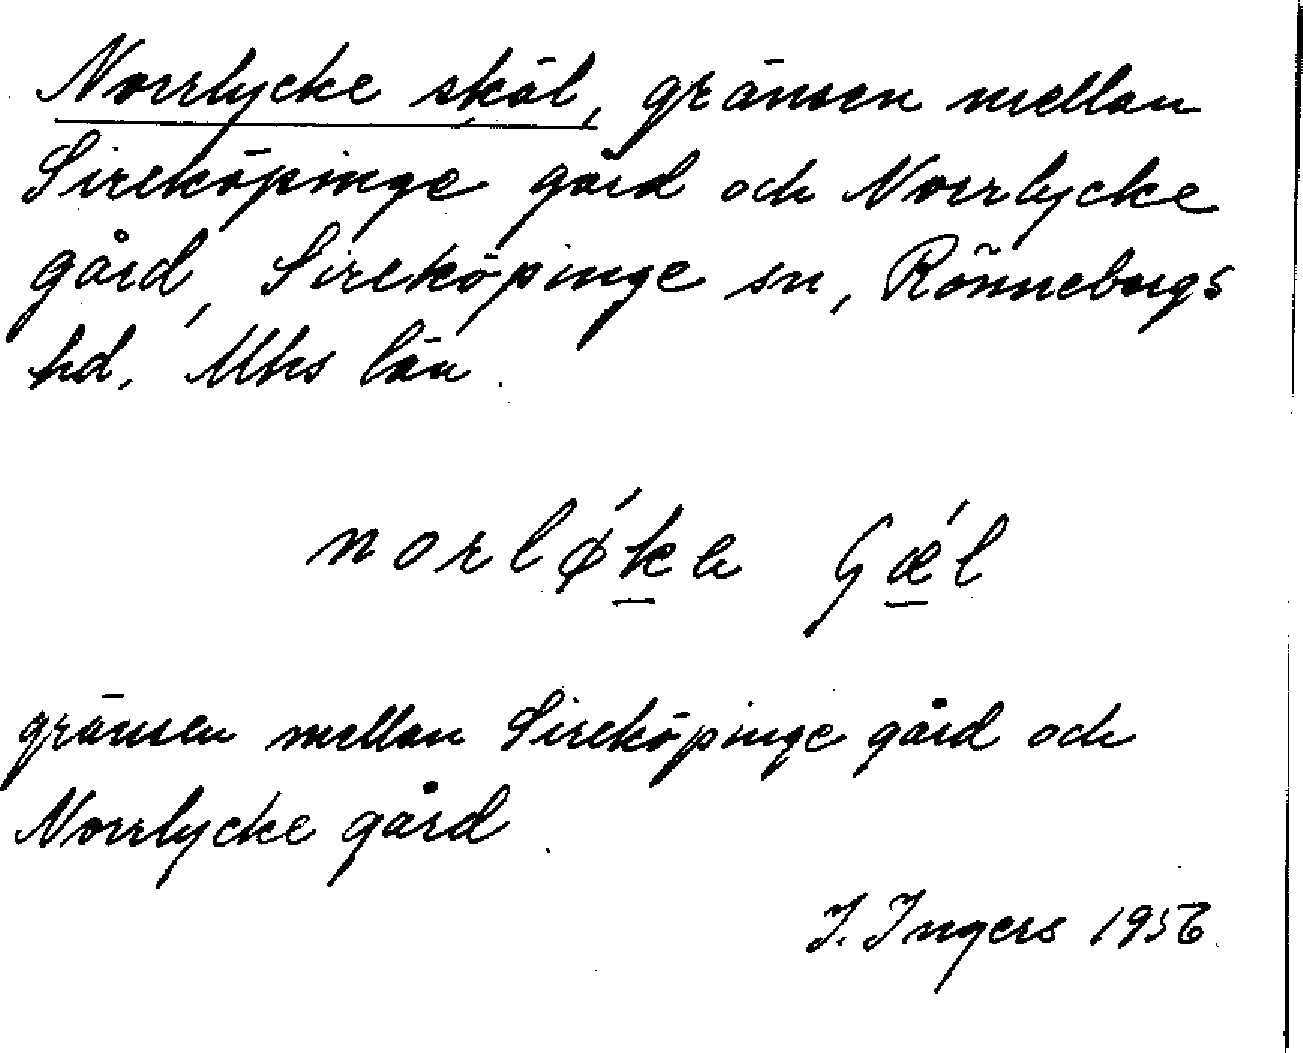 Norrlycke skäl, gränsen mellan
Sireköpinge gård och Norrlycke
gård, Sireköpinge sn, Rönnebergs
hd. Mhs län.
norlǿka ʃǽl
gränsen mellan Sireköpinge gård och
Norrlycke gård.
I. Ingers 1956.